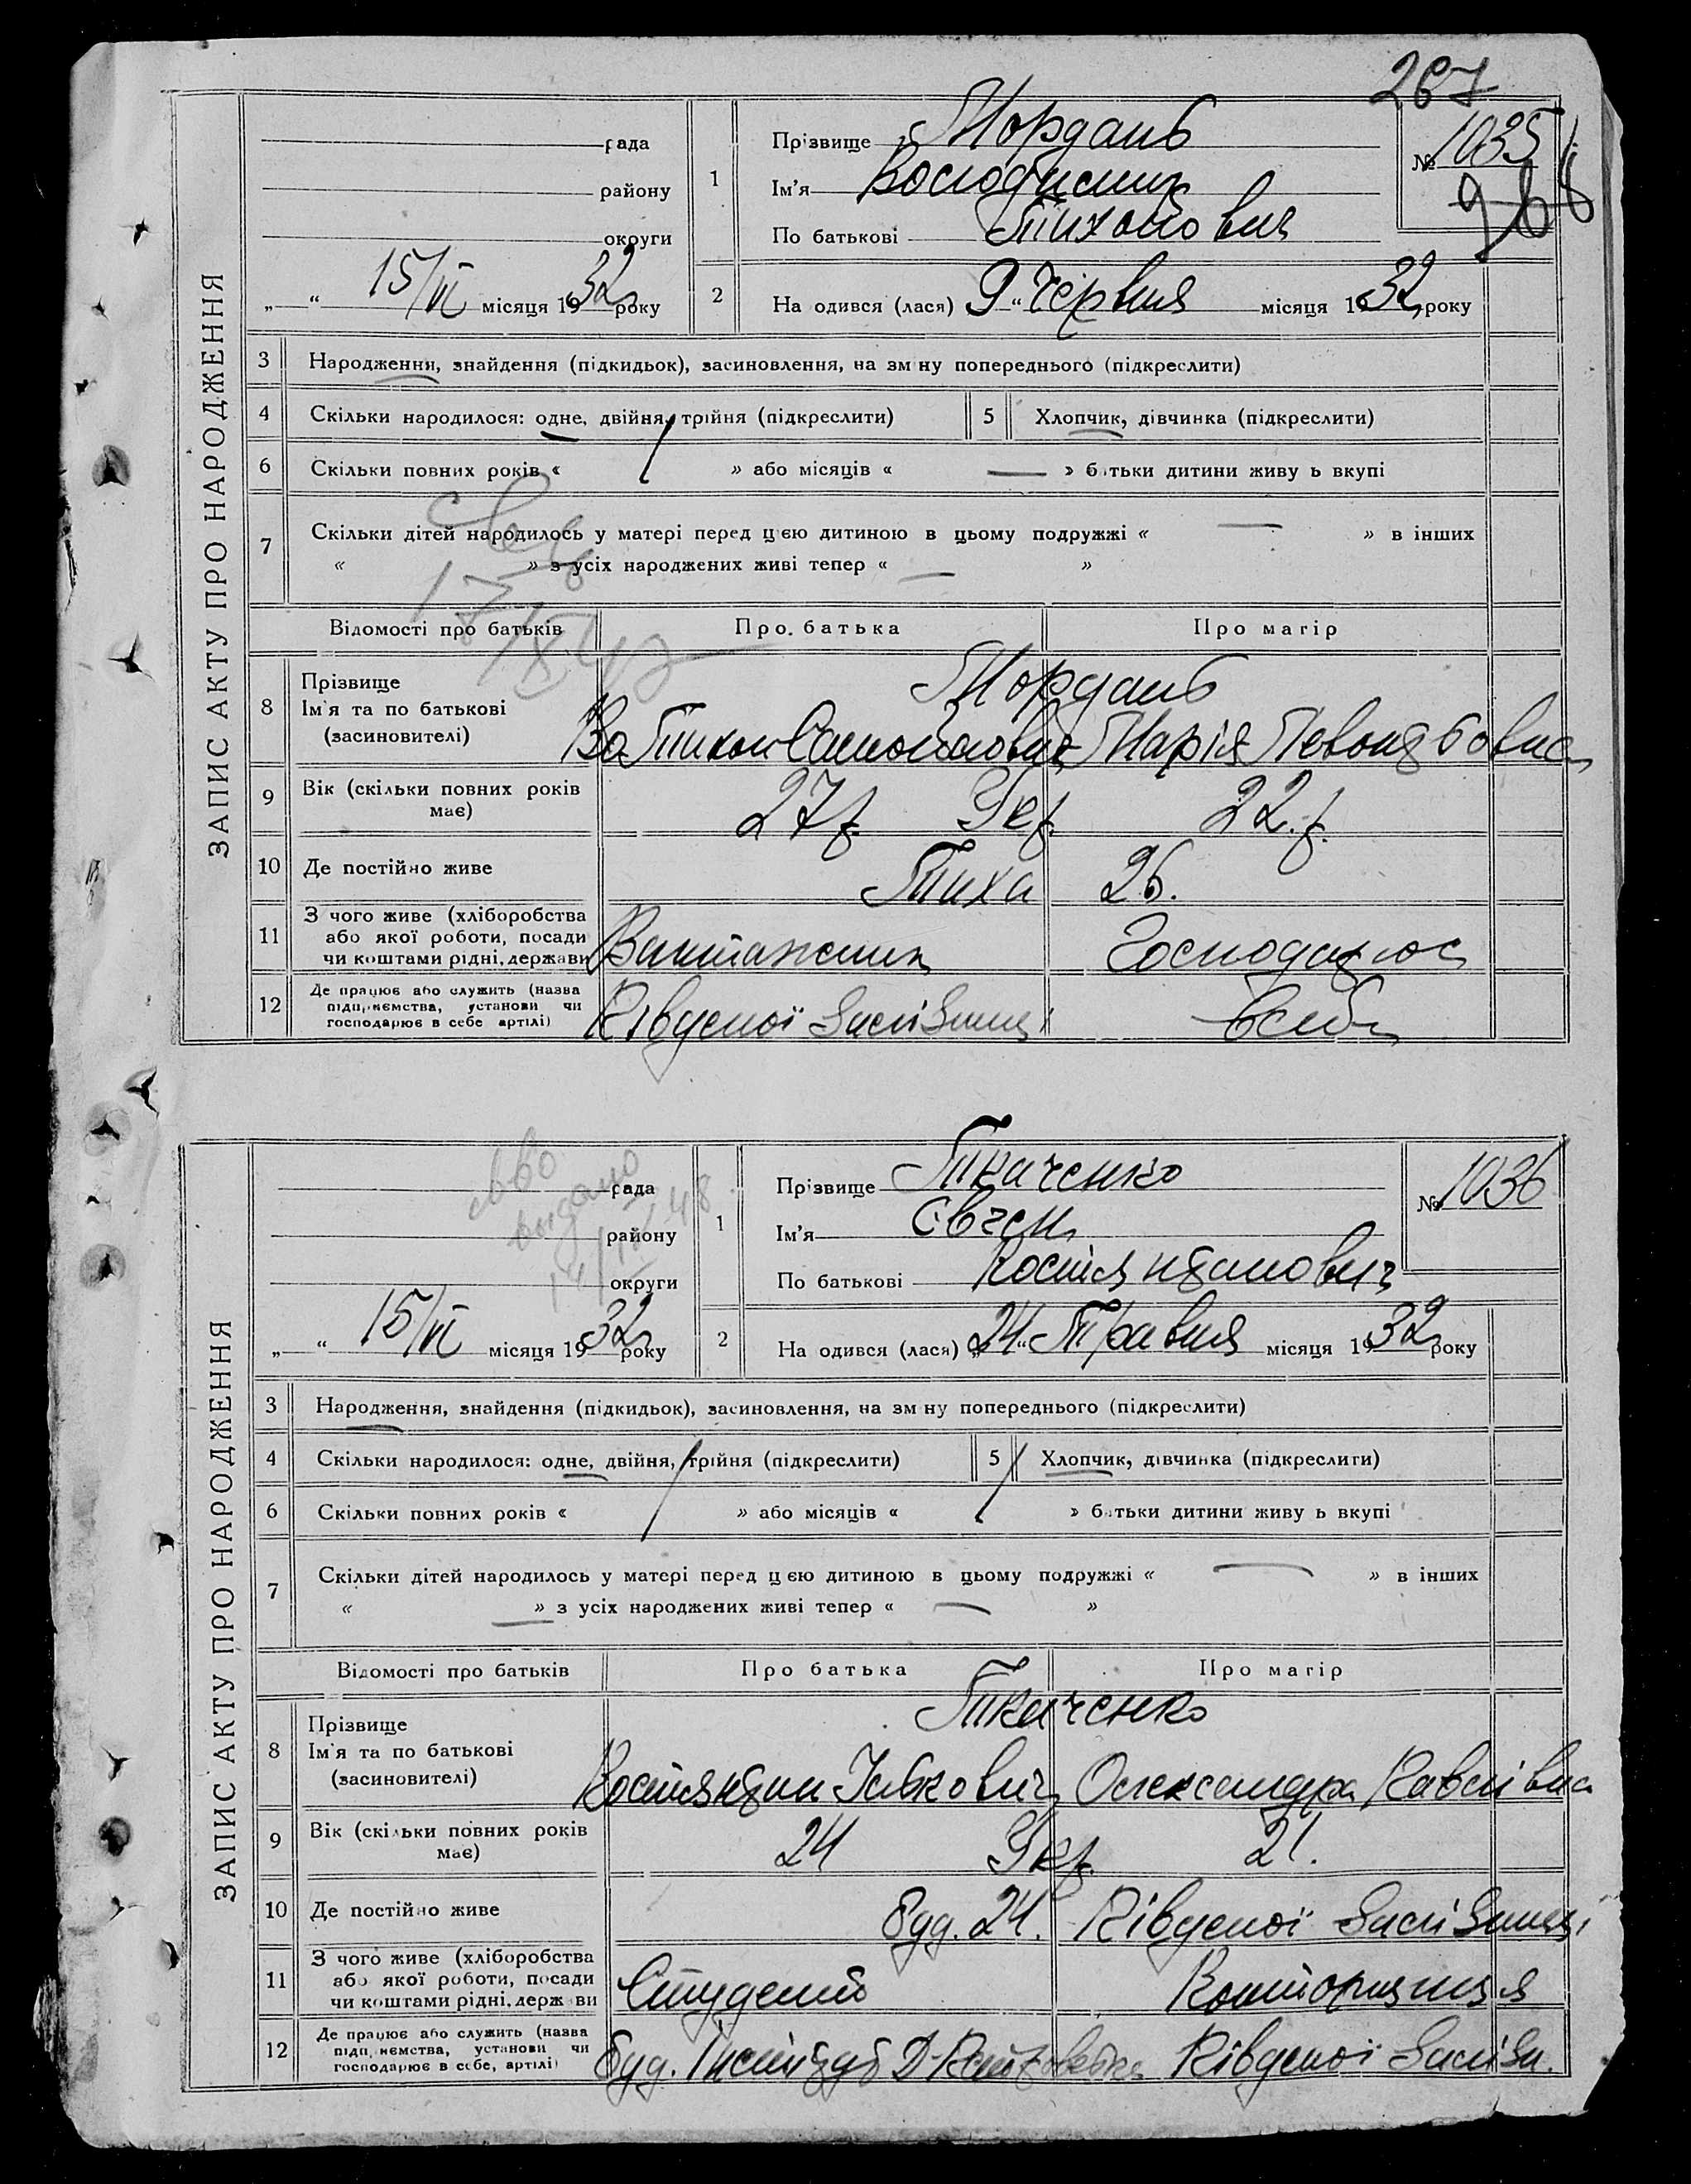 267
ЗАПИС АКТУ ПРО НАРОДЖЕННЯ
рада
району
округи
„ “ 15/VI місяця 1932 року
1
Прізвище Мордань
Ім’я Володимир
По батькові Тихонович
№ 1035
2
На одився (лася) 9 “ Червня місяця 1932 року
3 Народження, знайдення (підкидьок), засиновлення, на зм ну попереднього (підкреслити)
4 Скільки народилося: одне, двійня, трійня (підкреслити) 5 Хлопчик, дівчинка (підкреслити)
6 Скільки повних років « » або місяців « — » б тьки дитини живу ь вкупі
7 Скільки дітей народилось у матері перед ц єю дитиною в цьому подружжі « — » в інших
« » з усіх народжених живі тепер « — »
17/IX 47
Відомості про батьків Про батька Про матір
8 Прізвище
Ім’я та по батькові
(засиновителі)
Мордань
Тихон Самойлович Марія
9 Вік (скільки повних років
має)
27 р. Укр. 22. р.
10 Де постійно живе
Тиха 26.
11 З чого живе (хліборобства
або якої роботи, посади
чи коштами рідні, держави
Вантажник Господарює
12 Де працює або служить (назва
підп, иємства, установи чи
господарює в себе артілі)
Південої Залізниці
ЗАПИС АКТУ ПРО НАРОДЖЕННЯ
св-во
выдано
рада
району
округи
„ “ 15/VI місяця 1932 року
1
Прізвище Ткаченко
Ім’я Євген
По батькові Костянтинович
№ 1036
2
На одився (лася) „24“ Травня місяця 1932 року
3 Народження, знайдення (підкидьок), засиновлення, на зм ну попереднього (підкреслити)
4 Скільки народилося: одне, двійня, трійня (підкреслити) 5 Хлопчик, дівчинка (підкреслити)
6 Скільки повних років « » або місяців « » б тьки дитини живу ь вкупі
7 Скільки дітей народилось у матері перед ц єю дитиною в цьому подружжі « — » в інших
« — » з усіх народжених живі тепер « — »
Відомості про батьків Про батька Про матір
8 Прізвище
Ім’я та по батькові
(засиновителі)
Ткаченко
Костянтин Олександра Павлівна
9 Вік (скільки повних років
має)
24 Укр. 21.
10 Де постійно живе
буд. 24. Південої Залізниці
11 З чого живе (хліборобства
або якої роботи, посади
чи коштами рідні, держ ви
Студент Конторщиця
12 Де працює або служить (назва
підп, иємства, установи чи
господарює в себе, артілі)
буд. Інститут Південої Залізн.